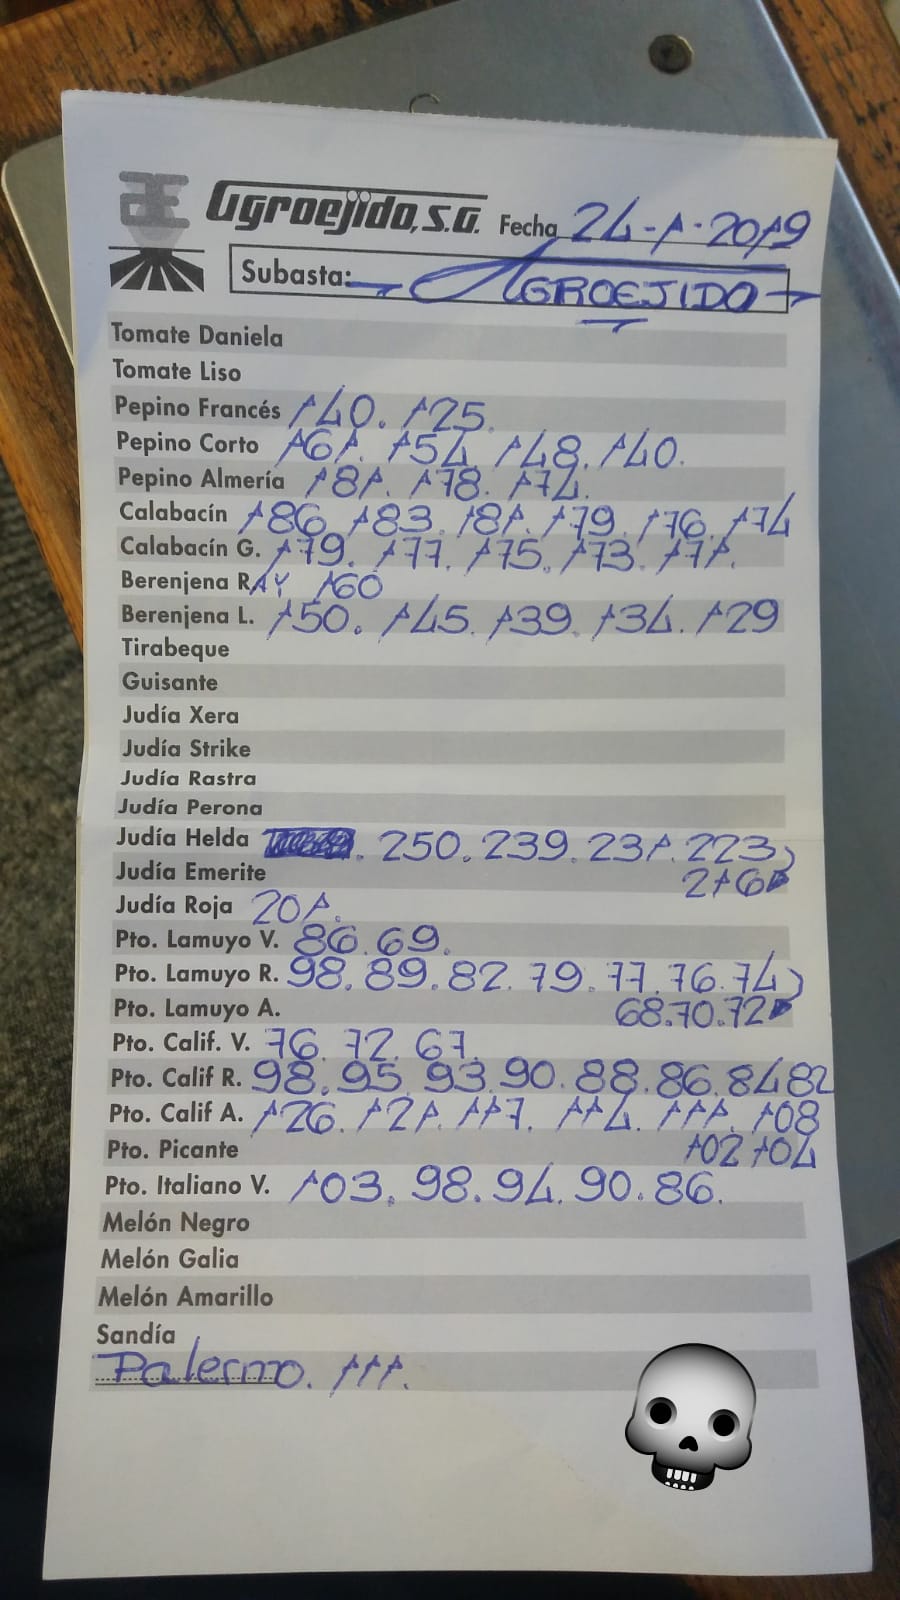 Agroejido, S.A. Fecha 24-1-2019
Subasta: AGROEJIDO
Tomate Daniela
Tomate Liso
Pepino Francés 140. 125.
Pepino Corto 161. 154 148. 140.
Pepino Almería 181. 178. 174.
Calabacín 186. 183. 181. 179. 176. 174
Calabacín G. 179. 177. 175. 173. 171.
Berenjena RAY 160
Berenjena L. 150. 145. 139. 134. 129
Tirabeque
Guisante
Judía Xera
Judía Strike
Judía Rastra
Judía Perona
Judía Helda . 250. 239. 231. 223
Judía Emerite 216
Judía Roja 201.
Pto. Lamuyo V. 86. 69.
Pto. Lamuyo R. 98. 89. 82. 79. 77. 76. 74
Pto. Lamuyo A. 68. 70. 72
Pto. Calif. V. 76. 72. 67.
Pto. Calif R. 98. 95. 93. 90. 88. 86. 84 82
Pto. Calif A. 126. 121. 117. 114. 111. 108
Pto. Picante 102 104
Pto. Italiano V. 103. 98. 94. 90. 86.
Melón Negro
Melón Galia
Melón Amarillo
Sandía
Palermo. 111.